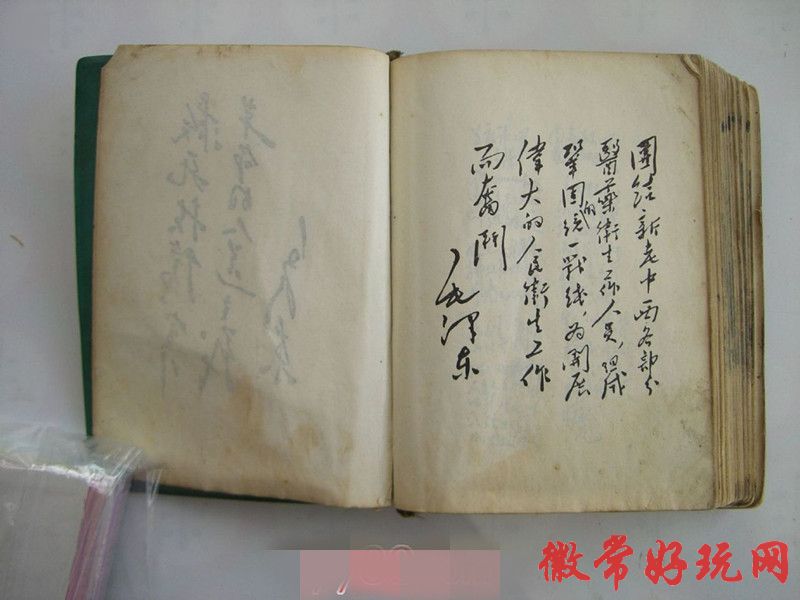 團结新老中西各部分
醫藥衛生工作人員,组成
鞏固的统一戰线,为開展
偉大的人民衛生工作
而奮鬥
毛泽东
徽常好玩网